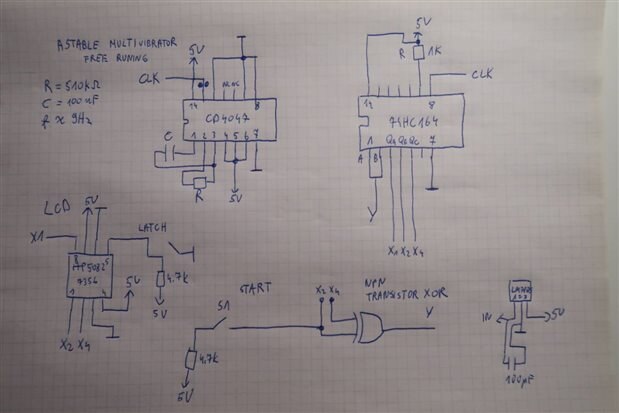 ASTABLE MULTIVIBRATOR
FREE RUNING
R = 510kΩ
C = 100nF
f ≈ 9Hz
5V
CLK
14
8
CD4047
1 2 3 4 5 6 7
C
R
5V
5V
R
1K
CLK
12
8
74HC164
1
QA QB QC
7
A
B
Y
X1 X2 X4
LCD
5V
X1
8
5
5082
7356
1
4
X2 X4
5V
LATCH
4.7k
5V
START
S1
4.7k
5V
X2 X4
NPN
TRANSISTOR XOR
Y
1 2 3
IN
5V
100µF